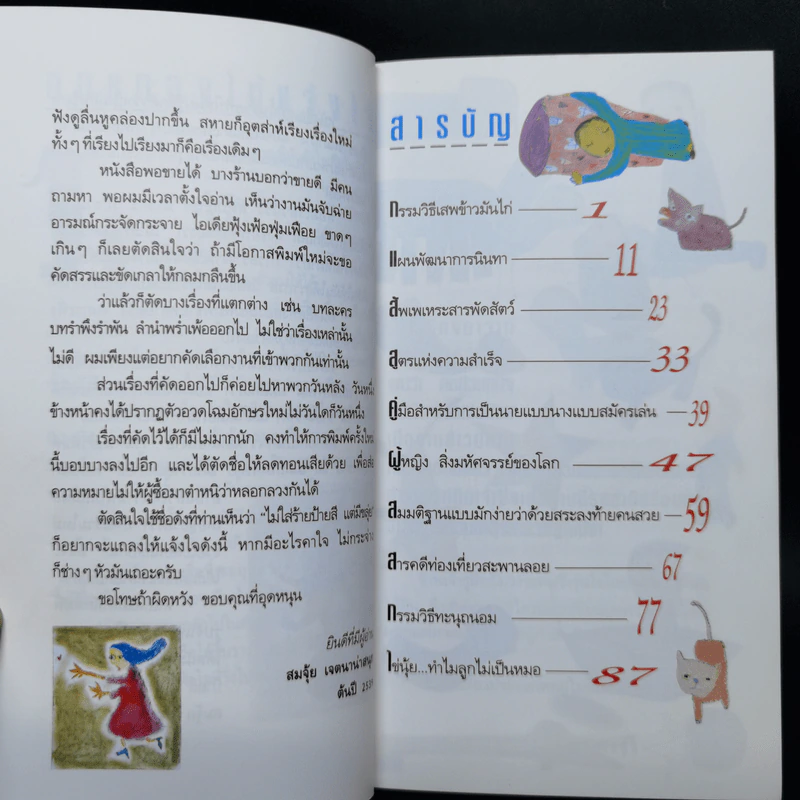 ฟังดูลื่นหูคล่องปากขึ้น สหายก็อุตส่าห์เรียงเรื่องใหม่
ทั้งๆ ที่เรียงไปเรียงมาก็คือเรื่องเดิมๆ
หนังสือพอขายได้ บางร้านบอกว่าขายดี มีคน
ถามหา พอผมมีเวลาตั้งใจอ่าน เห็นว่างานมันจับฉ่าย
อารมณ์กระจัดกระจาย ไอเดียฟุ้งเฟ้อฟุ่มเฟือย ขาดๆ
เกินๆ ก็เลยตัดสินใจว่า ถ้ามีโอกาสพิมพ์ใหม่จะขอ
คัดสรรและขัดเกลาให้กลมกลืนขึ้น
ว่าแล้วก็ตัดบางเรื่องที่แตกต่าง เช่น บทละคร
บทรำพึงรำพัน ลำนำพร่ำเพ้อออกไป ไม่ใช่ว่าเรื่องเหล่านั้น
ไม่ดี ผมเพียงแต่อยากคัดเลือกงานที่เข้าพวกกันเท่านั้น
ส่วนเรื่องที่คัดออกไปก็ค่อยไปหาพวกวันหลัง วันหนึ่ง
ข้างหน้าคงได้ปรากฏตัวอวดโฉมอักษรใหม่ไม่วันใดก็วันหนึ่ง
เรื่องที่คัดไว้ได้ก็มีไม่มากนัก คงทำให้การพิมพ์ครั้งใหม่
นี้บอบบางลงไปอีก และได้ตัดชื่อให้ลดทอนเสียด้วย เพื่อสื่อ
ความหมายไม่ให้ผู้ซื้อมาตำหนิว่าหลอกลวงกันได้
ตัดสินใจใช้ชื่อดังที่ท่านเห็นว่า "ไม่ใส่ร้ายป้ายสี แต่มีขลุ่ย"
ก็อยากจะแถลงให้แจ้งใจดังนี้ หากมีอะไรคาใจ ไม่กระจ่าง
ก็ช่างๆ หัวมันเถอะครับ
ขอโทษถ้าผิดหวัง ขอบคุณที่อุดหนุน
ยินดีที่มีผู้อ่าน
สมจุ้ย เจตนาน่าสนุก
ต้นปี
สารบัญ
กรรมวิธีเสพข้าวมันไก่ 1
แผนพัฒนาการนินทา 11
สัพเพเหระสารพัดสัตว์ 23
สูตรแห่งความสำเร็จ 33
คู่มือสำหรับการเป็นนายแบบนางแบบสมัครเล่น 39
ผู้หญิง สิ่งมหัศจรรย์ของโลก 47
สมมติฐานแบบมักง่ายว่าด้วยสระลงท้ายคนสวย 59
สารคดีท่องเที่ยวสะพานลอย 67
กรรมวิธีทะนุถนอม 77
ไข่นุ้ย...ทำไมลูกไม่เป็นหมอ 87